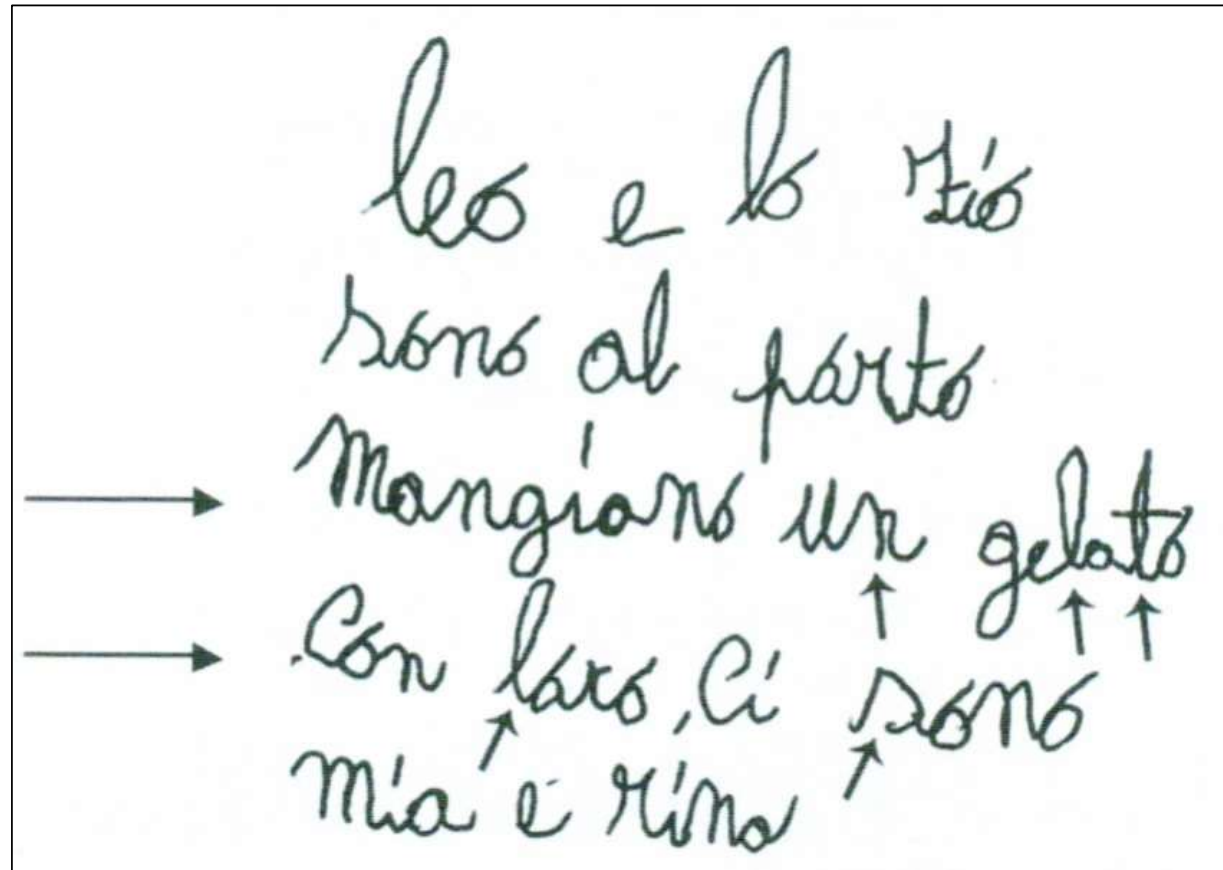 leo e lo zio
sono al porto
Mangiano un gelato
Con loro, Ci sono
mia e rino